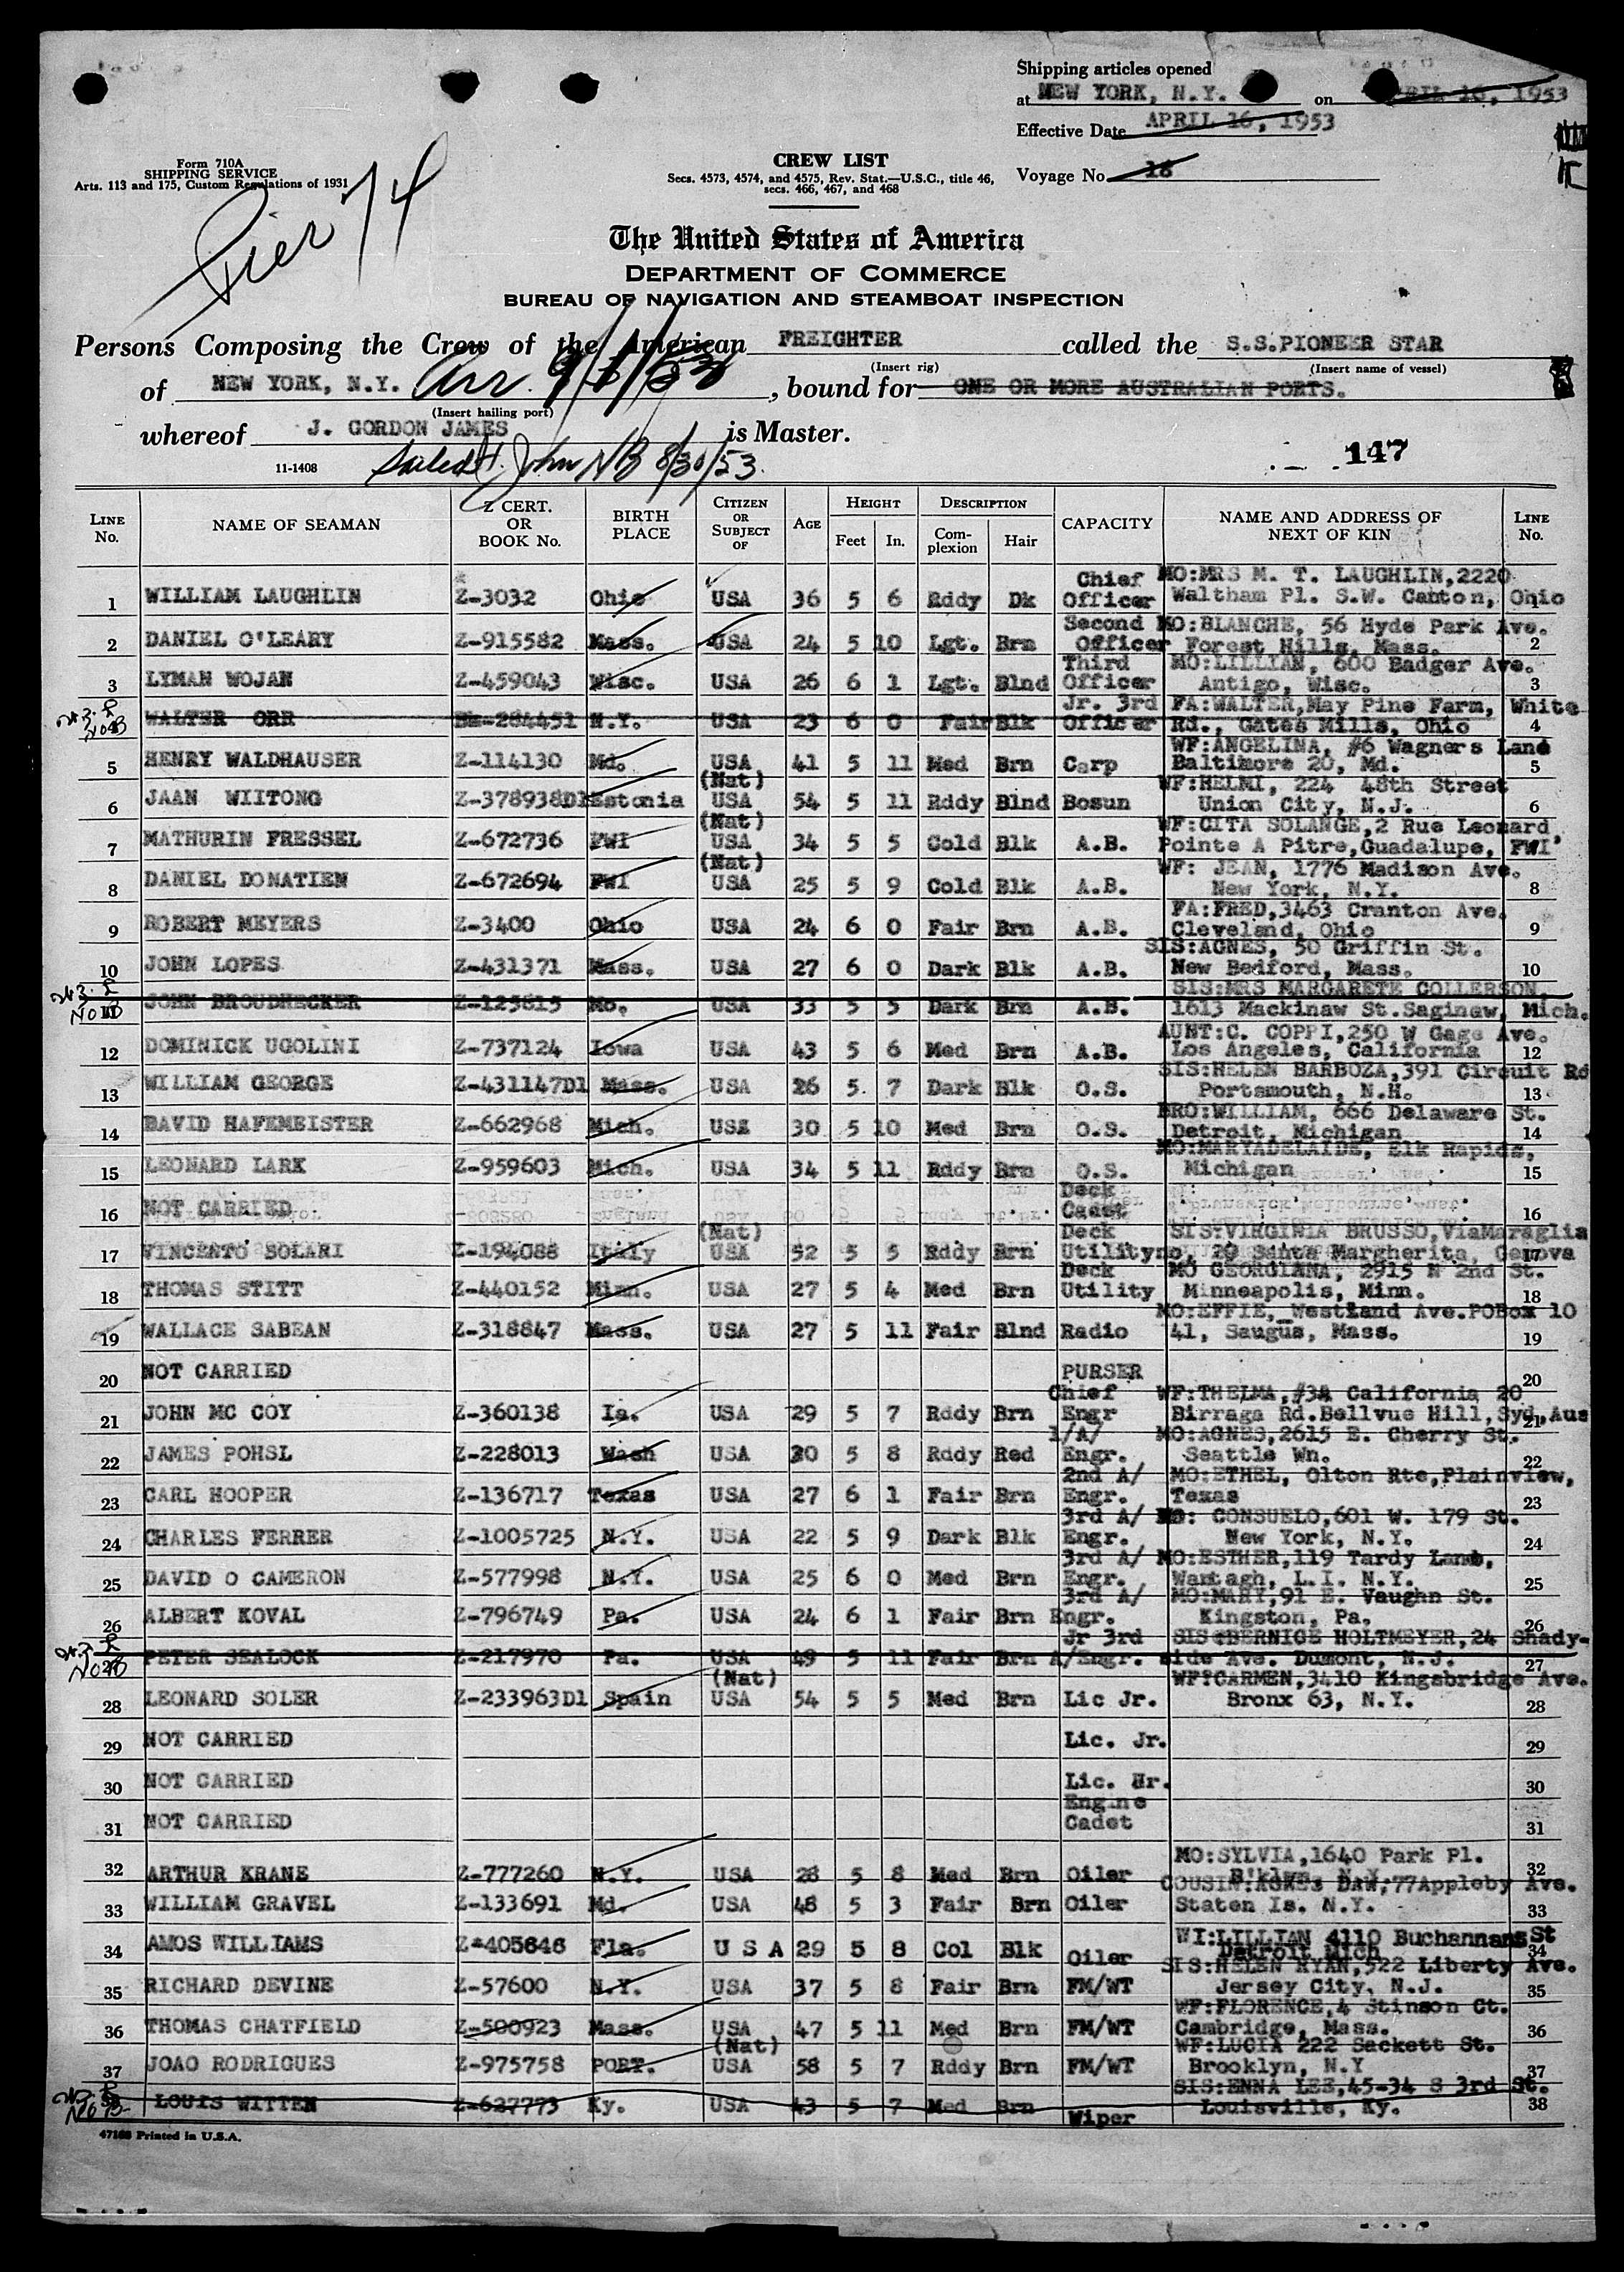 Shipping articles opened
at NEW YORK, N.Y. on APRIL 16, 1953
Effective Date APRIL 16, 1953
Form 710A
SHIPPING SERVICE
Arts. 113 and 175, Custom Regulations of 1931
CREW LIST
Secs. 4573, 4574, and 4575, Rev. Stat.—U.S.C., title 46,
secs. 466, 467, and 468
Voyage No. 18
Pier 74
The United States of America
DEPARTMENT OF COMMERCE
BUREAU OF NAVIGATION AND STEAMBOAT INSPECTION
Persons Composing the Crew of the American FREIGHTER called the S.S.PIONEER STAR
(Insert rig) (Insert name of vessel)
of NEW YORK, N.Y. Arr. 9/1/53, bound for ONE OR MORE AUSTRALIAN PORTS.
(Insert hailing port)
whereof J. GORDON JAMES is Master.
147
11-1408 Sailed St. John NB 8/30/53
LINE No. NAME OF SEAMAN Z CERT. OR BOOK No. BIRTH PLACE CITIZEN OR SUBJECT OF AGE HEIGHT Feet In. DESCRIPTION Complexion Hair CAPACITY NAME AND ADDRESS OF NEXT OF KIN LINE No.
1 WILLIAM LAUGHLIN Z-3032 Ohio USA 36 5 6 Rddy Dk Chief Officer MO:MRS M. T. LAUGHLIN,2220 Waltham Pl. S.W. Canton, Ohio 1
2 DANIEL O'LEARY Z-915582 Mass. USA 24 5 10 Lgt. Brn Second Officer MO:BLANCHE, 56 Hyde Park Ave. Forest Hills, Mass. 2
3 LYMAN WOJAN Z-459043 Wisc. USA 26 6 1 Lgt. Blnd Third Officer MO:LILLIAN, 600 Badger Ave. Antigo, Wisc. 3
WALTER ORR 284451 N.Y. USA 23 6 0 Fair Blk Jr. 3rd Officer FA:WALTER,May Pine Farm, White Rd., Gates Mills, Ohio 4
5 HENRY WALDHAUSER Z-114130 Md. USA 41 5 11 Med Brn Carp WF:ANGELINA, #6 Wagners Land Baltimore 20, Md. 5
6 JAAN WIITONG Z-378938D1 Estonia (Nat) USA 54 5 11 Rddy Blnd Bosun WF:HELMI, 224 48th Street Union City, N.J. 6
7 MATHURIN FRESSEL Z-672736 FWI (Nat) USA 34 5 5 Cold Blk A.B. WF:CITA SOLANGE,2 Rue Leonard, Pointe A Pitre,Guadalupe, FWI 7
8 DANIEL DONATIEN Z-672694 FWI (Nat) USA 25 5 9 Cold Blk A.B. WF: JEAN, 1776 Madison Ave. New York, N.Y. 8
9 ROBERT MEYERS Z-3400 Ohio USA 24 6 0 Fair Brn A.B. FA:FRED,3463 Cranton Ave. Cleveland, Ohio 9
10 JOHN LOPES Z-431371 Mass. USA 27 6 0 Dark Blk A.B. SIS:AGNES, 50 Griffin St. New Bedford, Mass. 10
11 JOHN BROUDHECKER Z-125815 Mo. USA 33 5 5 Dark Brn A.B. SIS:MRS MARGARETE COLLERSON, 1613 Mackinaw St.Saginaw, Mich.
12 DOMINICK UGOLINI Z-737124 Iowa USA 43 5 6 Med Brn A.B. AUNT:C. COPPI,250 W Gage Ave. Los Angeles, California 12
13 WILLIAM GEORGE Z-431147D1 Mass. USA 26 5 7 Dark Blk O.S. SIS:HELEN BARBOZA,391 Circuit Rd Portsmouth, N.H. 13
14 DAVID HAFEMEISTER Z-662968 Mich. USA 30 5 10 Med Brn O.S. BRO:WILLIAM, 666 Delaware St. Detroit, Michigan 14
15 LEONARD LARK Z-959603 Mich. USA 34 5 11 Rddy Brn O.S. MO:MARYADELAIDE, Elk Rapids, Michigan 15
16 NOT CARRIED Deck Cadet 16
17 VINCENTO SOLARI Z-194088 Italy (Nat) USA 52 5 5 Rddy Brn Deck Utility SIS:VIRGINIA BRUSSO,ViaMaraglia no, 20 Santa Margherita, Genova 17
18 THOMAS STITT Z-440152 Minn. USA 27 5 4 Med Brn Deck Utility MO GEORGIANNA, 2915 N 2nd St. Minneapolis, Minn. 18
19 WALLACE SABEAN Z-318847 Mass. USA 27 5 11 Fair Blnd Radio MO:EFFIE, Westland Ave.POBox 10 41, Saugus, Mass. 19
20 NOT CARRIED PURSER 20
21 JOHN MC COY Z-360138 Ia. USA 29 5 7 Rddy Brn Chief Engr WF:THELMA,#3A California 20 Birraga Rd.Bellvue Hill,Syd,Aus 21
22 JAMES POHSL Z-228013 Wash USA 30 5 8 Rddy Red 1/A/ Engr. MO:AGNES,2615 E. Cherry St. Seattle Wn. 22
23 CARL HOOPER Z-136717 Texas USA 27 6 1 Fair Brn 2nd A/ Engr. MO:ETHEL, Olton Rte,Plainview, Texas 23
24 CHARLES FERRER Z-1005725 N.Y. USA 22 5 9 Dark Blk 3rd A/ Engr. MO: CONSUELO,601 W. 179 St. New York, N.Y. 24
25 DAVID O CAMERON Z-577998 N.Y. USA 25 6 0 Med Brn 3rd A/ Engr. MO:ESTHER,119 Tardy Land, Wantagh, L.I. N.Y. 25
26 ALBERT KOVAL Z-796749 Pa. USA 24 6 1 Fair Brn 3rd A/ Engr. MO:MARY,91 E. Vaughn St. Kingston, Pa. 26
PETER SEALOCK Z-217970 Pa. USA 49 5 11 Fair Brn Jr 3rd A/Engr. SIS:BERNICE HOLTMEYER,24 Shady-side Ave. Dumont, N.J. 27
28 LEONARD SOLER Z-233963D1 Spain (Nat) USA 54 5 5 Med Brn Lic Jr. WF:CARMEN,3410 Kingsbridge Ave. Bronx 63, N.Y. 28
29 NOT CARRIED Lic. Jr. 29
30 NOT CARRIED Lic. Jr. 30
31 NOT CARRIED Engine Cadet 31
32 ARTHUR KRANE Z-777260 N.Y. USA 28 5 8 Med Brn Oiler MO:SYLVIA,1640 Park Pl. B'klyn N.Y. 32
33 WILLIAM GRAVEL Z-133691 Md. USA 48 5 3 Fair Brn Oiler COUSIN:AGNES DAW,77Appleby Ave. Staten Is. N.Y. 33
34 AMOS WILLIAMS Z-405646 Fla. U S A 29 5 8 Col Blk Oiler WI:LILLIAN 4110 Buchannans St Detroit Mich 34
35 RICHARD DEVINE Z-57600 N.Y. USA 37 5 8 Fair Brn FM/WT SIS:HELEN RYAN,522 Liberty Ave. Jersey City, N.J. 35
36 THOMAS CHATFIELD Z-500923 Mass. USA 47 5 11 Med Brn FM/WT WF:FLORENCE,4 Stinson Ct. Cambridge, Mass. 36
37 JOAO RODRIGUES Z-975758 PORT. (Nat) USA 58 5 7 Rddy Brn FM/WT WF:LUCIA 222 Sackett St. Brooklyn, N.Y 37
LOUIS WITTEN Z-627773 Ky. USA 43 5 7 Med Brn Wiper SIS:ENNA LEE,45-34 S 3rd St. Louisville, Ky. 38
Printed in U.S.A.